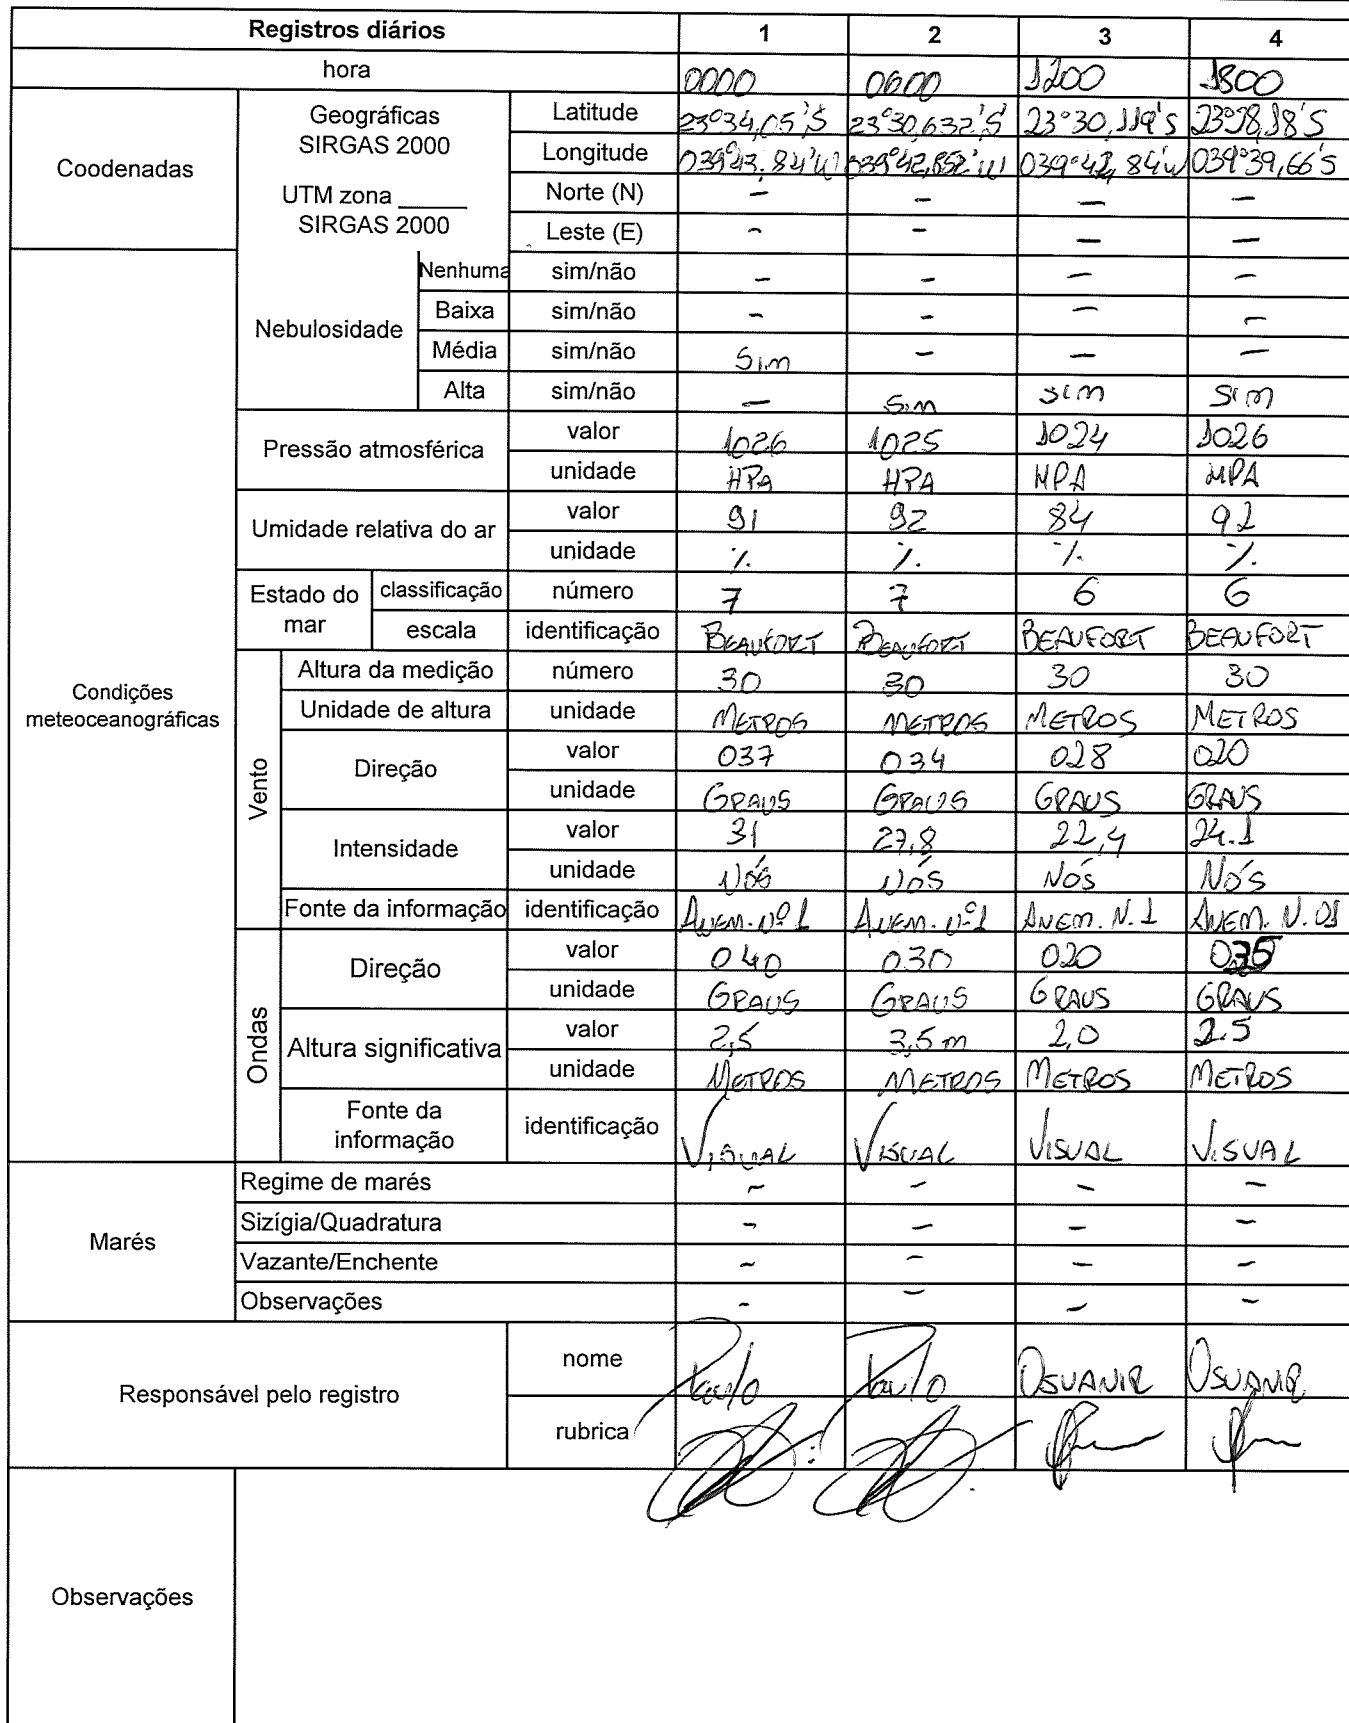 Registros diários 1 2 3 4
hora 0000 0600 1200 1800
Coodenadas Geográficas SIRGAS 2000 Latitude 23°34,05'S 23°30,632'S 23°30,119'S 23°28,18'S
Longitude 039°43,84'W 039°42,852'W 039°42,84'W 039°39,66'S
UTM zona ______ SIRGAS 2000 Norte (N) - - - -
Leste (E) - - - -
Condições meteoceanográficas Nebulosidade Nenhuma sim/não - - - -
Baixa sim/não - - - -
Média sim/não Sim - - -
Alta sim/não - Sim sim Sim
Pressão atmosférica valor 1026 1025 1024 1026
unidade HPA HPA HPA HPA
Umidade relativa do ar valor 91 92 84 92
unidade % % % %
Estado do mar classificação número 7 7 6 6
escala identificação BEAUFORT BEAUFORT BEAUFORT BEAUFORT
Vento Altura da medição número 30 30 30 30
Unidade de altura unidade METROS METROS METROS METROS
Direção valor 037 034 028 020
unidade GRAUS GRAUS GRAUS GRAUS
Intensidade valor 31 27,8 22,4 24.1
unidade NÓS NÓS NÓS NÓS
Fonte da informação identificação ANEM. Nº 1 ANEM. Nº 1 ANEM. N. 1 ANEM. N. 01
Ondas Direção valor 040 030 020
unidade GRAUS GRAUS GRAUS GRAUS
Altura significativa valor 2,5 3,5 m 2,0 2.5
unidade METROS METROS METROS METROS
Fonte da informação identificação VISUAL VISUAL VISUAL VISUAL
Marés Regime de marés - - - -
Sizígia/Quadratura - - - -
Vazante/Enchente - - - -
Observações - - - -
Responsável pelo registro nome Paulo Paulo OSVANIR OSVANIR
rubrica
Observações